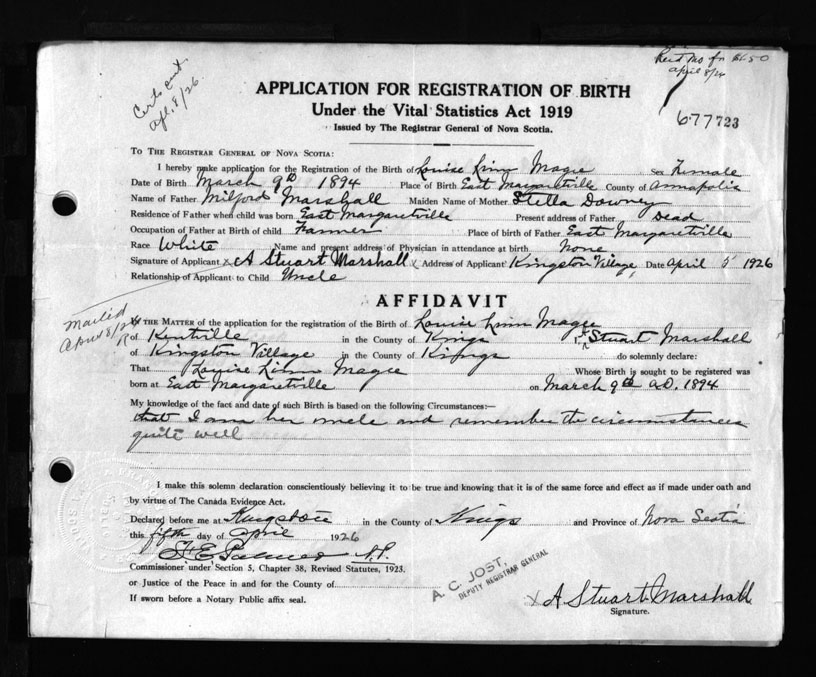 Cert. out
Apl. 8/26.
April 8/26
677723
APPLICATION FOR REGISTRATION OF BIRTH
Under the Vital Statistics Act 1919
Issued by The Registrar General of Nova Scotia.
To The Registrar General of Nova Scotia:
I hereby make application for the Registration of the Birth of Louise Linn Magee Sex Female
Date of Birth March 9th 1894 Place of Birth East Margaretville County of Annapolis
Name of Father Milford Marshall Maiden Name of Mother Stella Downey
Residence of Father when child was born East Margaretville Present address of Father Dead
Occupation of Father at Birth of child Farmer Place of birth of Father East Margaretville
Race White Name and present address of Physician in attendance at birth None
Signature of Applicant x A Stuart Marshall x Address of Applicant Kingston Village, Date April 5 1926
Relationship of Applicant to Child Uncle
AFFIDAVIT
Mailed
April 8/26
In the Matter of the application for the registration of the Birth of Louise Linn Magee
of Kentville in the County of Kings I, A Stuart Marshall
of Kingston Village in the County of Kings do solemnly declare:
That Louise Linn Magee Whose Birth is sought to be registered was
born at East Margaretville on March 9th A.D. 1894
My knowledge of the fact and date of such Birth is based on the following Circumstances:—
that I am her uncle and remember the circumstances
quite well
I make this solemn declaration conscientiously believing it to be true and knowing that it is of the same force and effect as if made under oath and
by virtue of The Canada Evidence Act.
Declared before me at Kingston in the County of Kings and Province of Nova Scotia
this fifth day of April 1926
Commissioner under Section 5, Chapter 38, Revised Statutes, 1923.
or Justice of the Peace in and for the County of
If sworn before a Notary Public affix seal.
A. C. JOST,
DEPUTY REGISTRAR GENERAL
x A Stuart Marshall
Signature.